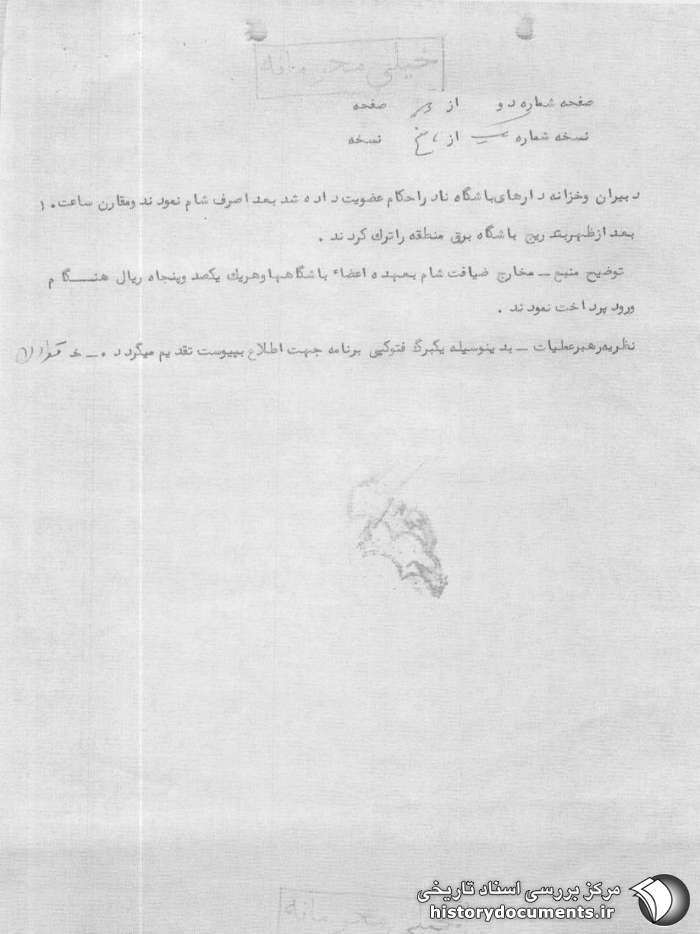 خیلی محرمانه
صفحه شماره دو از دو صفحه
نسخه شماره از نسخه
دبیران وخزانه دارهای باشگاه نادر احکام عضویت داده شد بعد اصرف شام نمودند ومقارن ساعت ۱۰
بعد ازظهر بتدریج باشگاه برق منطقه راترک کردند .
توضیح منبع ـ مخارج ضیافت شام بعهده اعضاء باشگاهها وهریک یکصد وپنجاه ریال هنـــگام
ورود پرداخت نمودند .
نظریه رهبرعملیات ـ بدینوسیله یکبرگ فتوکپی برنامه جهت اطلاع بپیوست تقدیم میگردد ۰ـ خ
خیلی محرمانه
مرکز بررسی اسناد تاریخی
historydocuments.ir